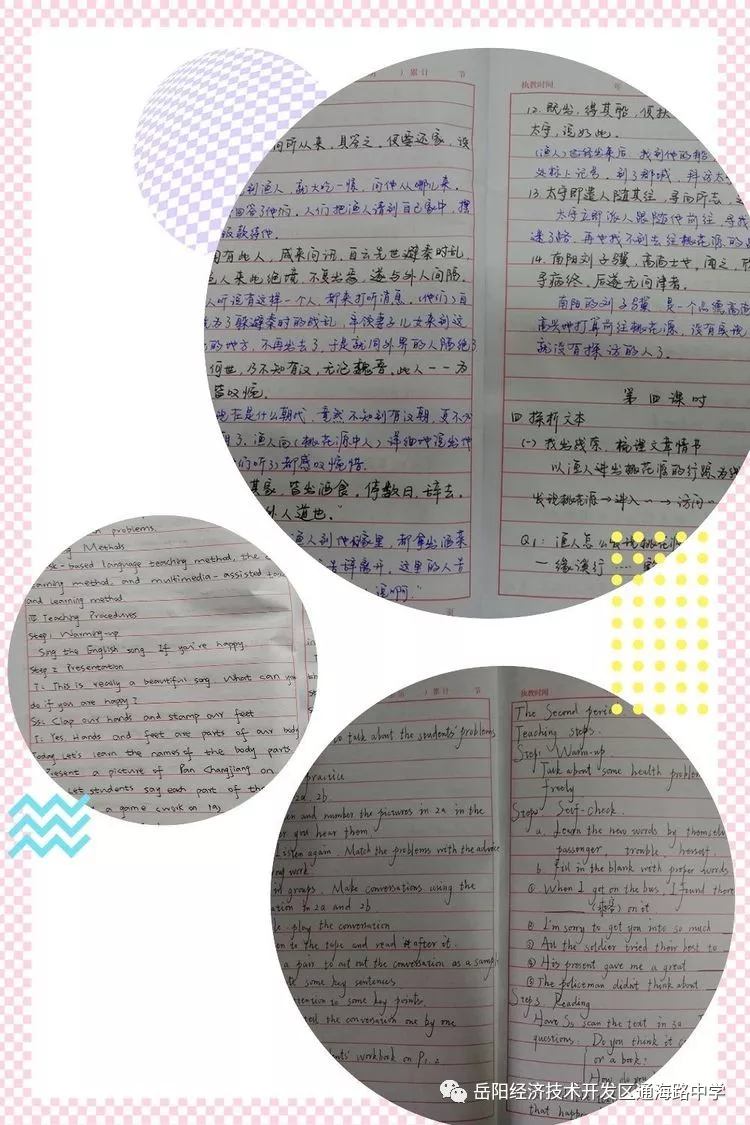 ）累计 节
问所从来，具答之，便要还家，设
到渔人，就大吃一惊，问他从哪儿来。
回答了他们，人们把渔人请到自己家中，摆
饭款待他。
闻有此人，咸来问讯，自云先世避秦时乱，
邑人来此绝境，不复出焉，遂与外人间隔。
人听说有这样一个人，都来打听消息。（他们）自
为了躲避秦时的战乱，率领妻子儿女来到这
的地方，不再出去了，于是就同外界的人隔绝了
何世，乃不知有汉，无论魏晋。此人一一为
皆叹惋。
现在是什么朝代，竟然不知到有汉朝，更不
渔人向（桃花源中人）详细地说出他
们听了）都感叹惋惜。
其家，皆出酒食，停数日，辞去，
外人道也。”
渔人到他们家里，都拿出酒来
告辞离开，这里的人告
说啊。”
执教时间 年
12. 既出，得其船，便扶
太守，说如此。
（渔人）出来后，找到他的船
处标上记号，到了郡城，拜访太
13. 太守即遣人随其往，寻向所志，
太守立即派人跟随他前往，寻找
迷了路，再也找不到去往桃花源的
14. 南阳刘子骥，高尚士也，闻之，欣
寻病终，后遂无问津者。
南阳的刘子骥是一个品德高尚
高兴地打算前往桃花源，没有实现
就没有探访的人了。
第四课时
四 探析文本
（一）找出线索，梳理文章情节
以渔人进出桃花源的行踪为线
发现桃花源→进入→访问
Q1：渔人怎么发现桃花源
—缘溪行……
problems.
Methods
-based language teaching method, the
learning method, and multimedia-assisted
and learning method
Teaching Procedures
Step 1 Warming-up
Sing the English song If you're happy.
Step 2 Presentation
T: This is really a beautiful song. What can you
do if you are happy?
Ss: Clap our hands and stamp our feet
T: Yes. Hands and feet are parts of our body
Today Let's learn the names of the body parts
Present a picture of Pan Changjiang on
Let students say each part of the
a game (work on 1a)
）累计 节
to talk about the students' problems
practice
2a, 2b
and number the pictures in 2a in the
you hear them
Listen again. Match the problems with the advice
work
groups. Make conversations using the
in 2a and 2b
-play the conversation
to the tape and read it after it.
a pair to act out the conversation as a sample
some key sentences
attention to some key points.
the conversation one by one
workbook on P1, 2
执教时间
The Second peri
Teaching steps.
Step 1 Warm-up
Talk about some health problem
freely
Step Self-Check.
a. Learn the new words by themselv
passenger, trouble, herself,
b. fill in the blank with proper words
① When I get on the bus, I found there
(乘客) on it
② I'm sorry to get you into so much
③ All the soldier tried their best to
④ His present gave me a great
⑤ The policeman didn't think about
Step 3 Reading
Have Ss scan the text in 3a
questions: Do you think it
or a book?
How do you
that happ
岳阳经济技术开发区通海路中学